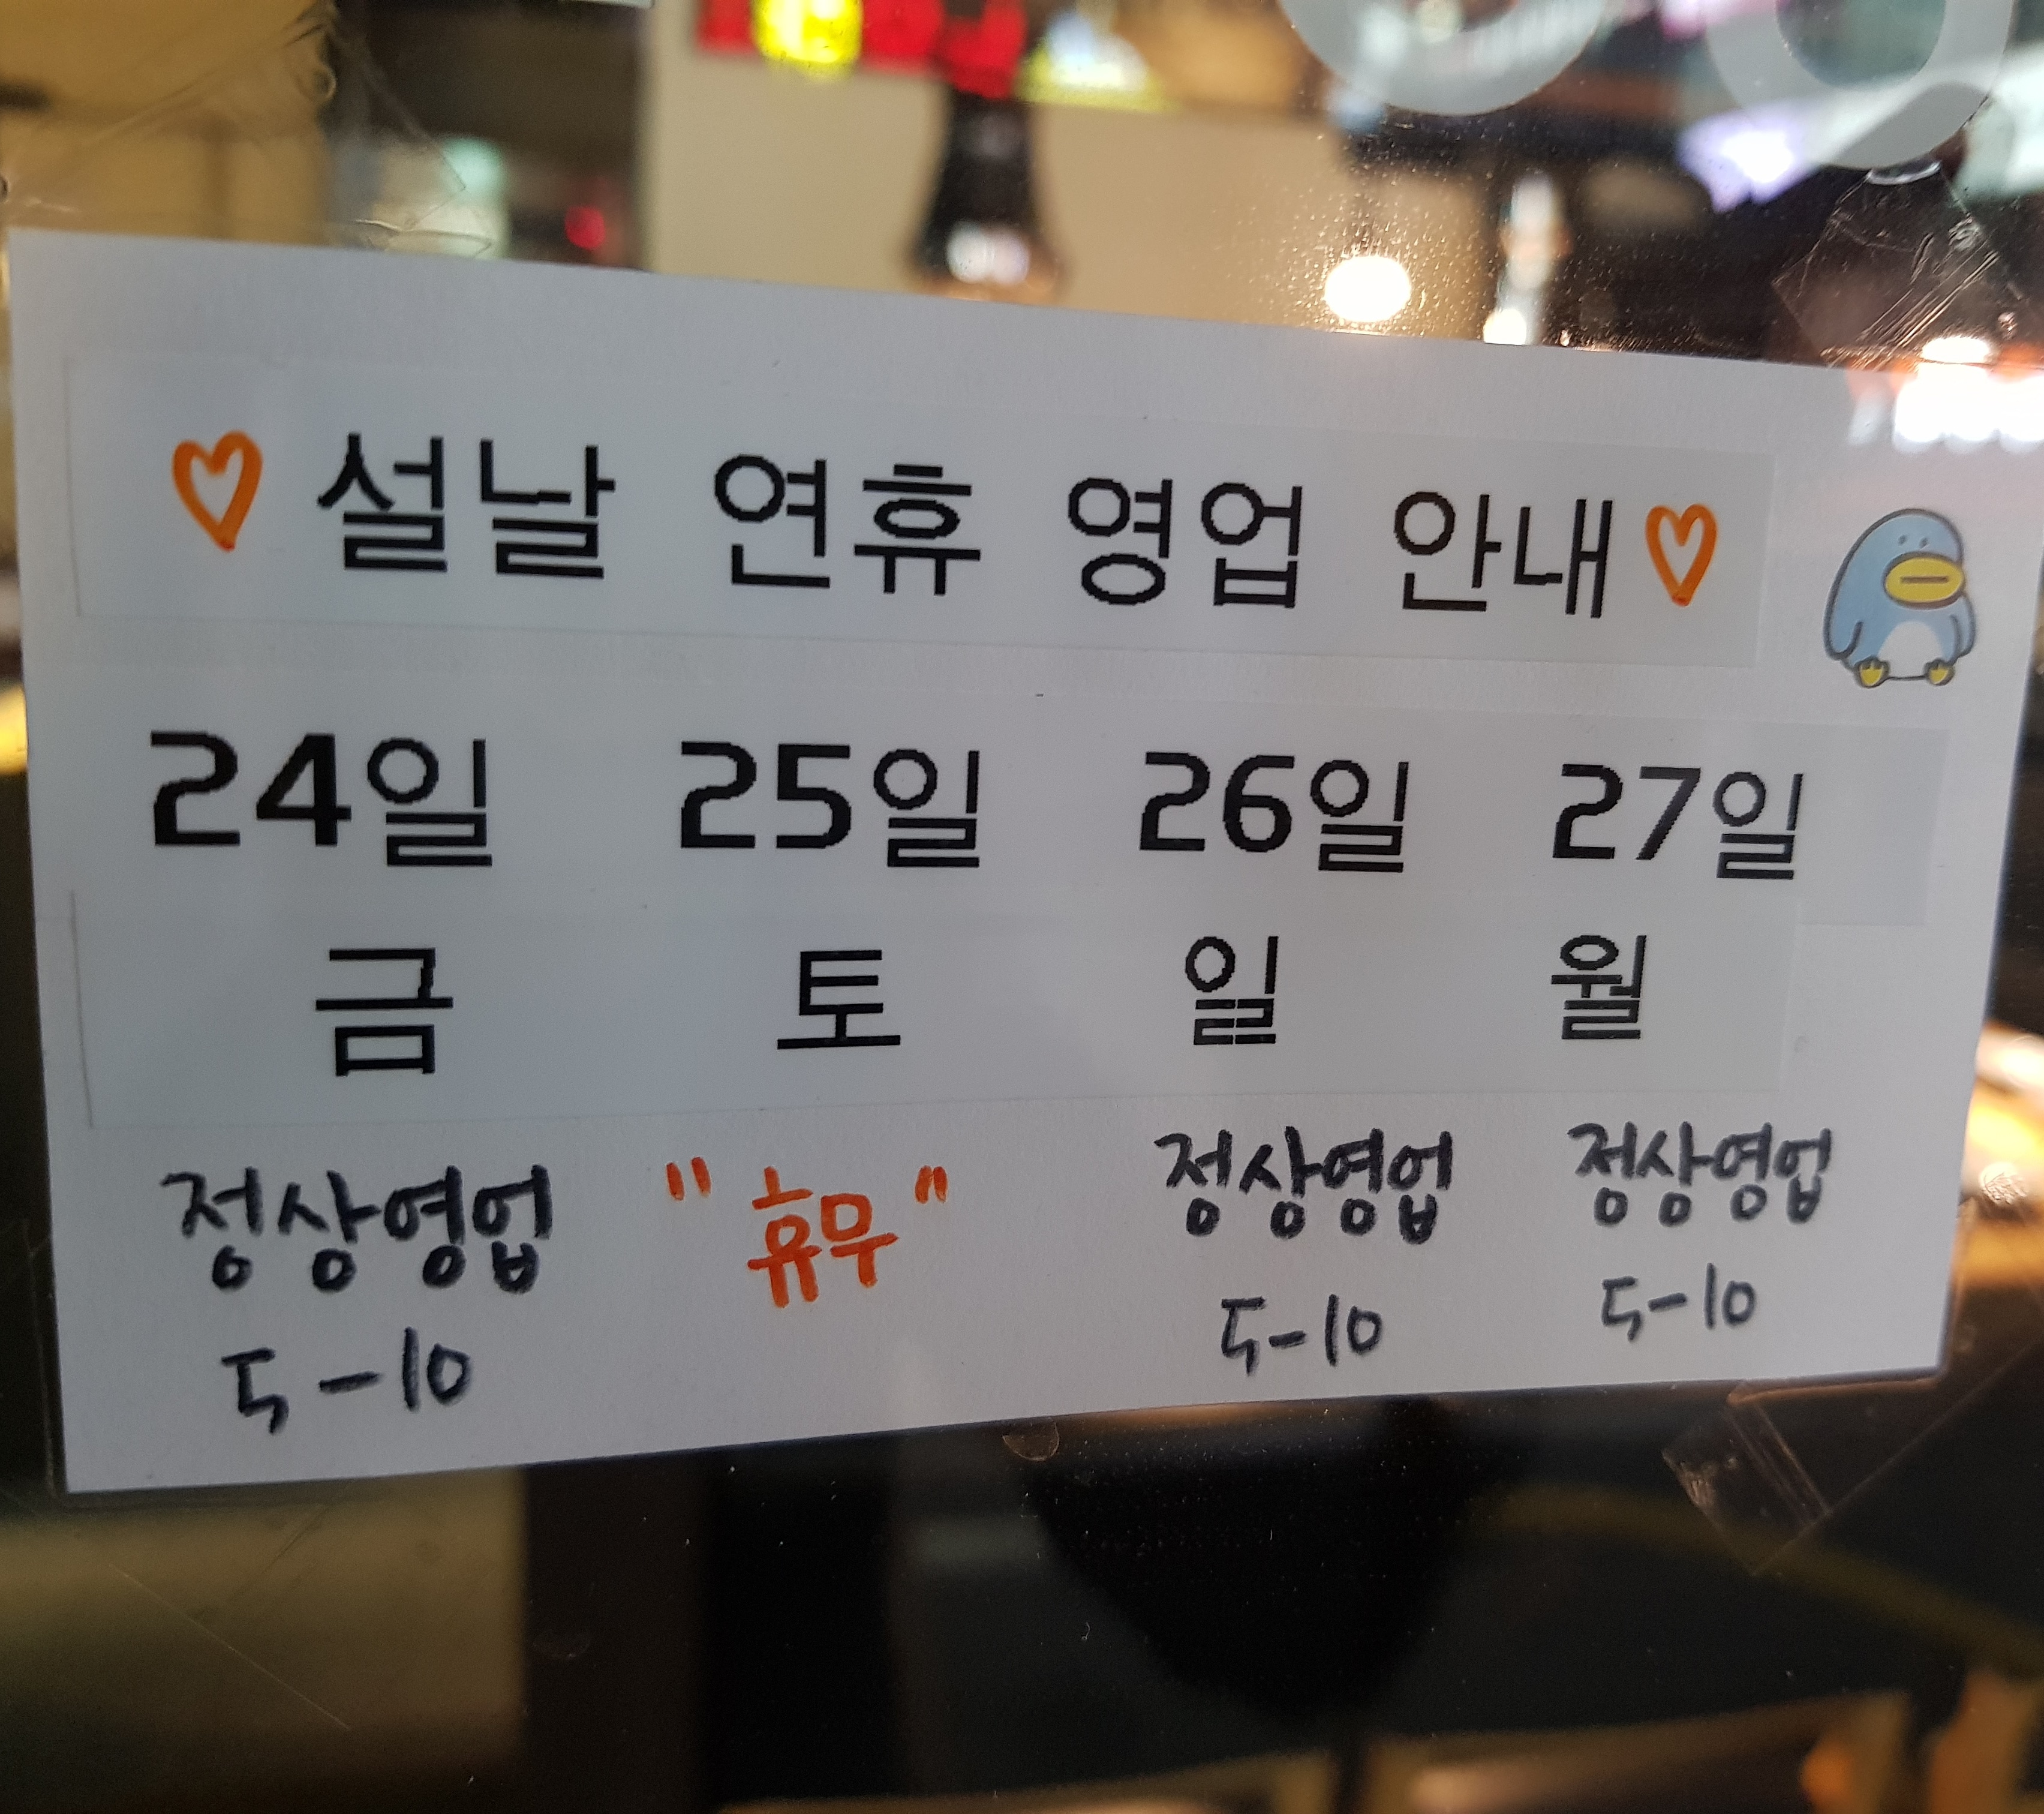 ♡ 설날 연휴 영업 안내 ♡
24일 25일 26일 27일
금 토 일 월
정상영업 "휴무" 정상영업 정상영업
5-10 5-10 5-10